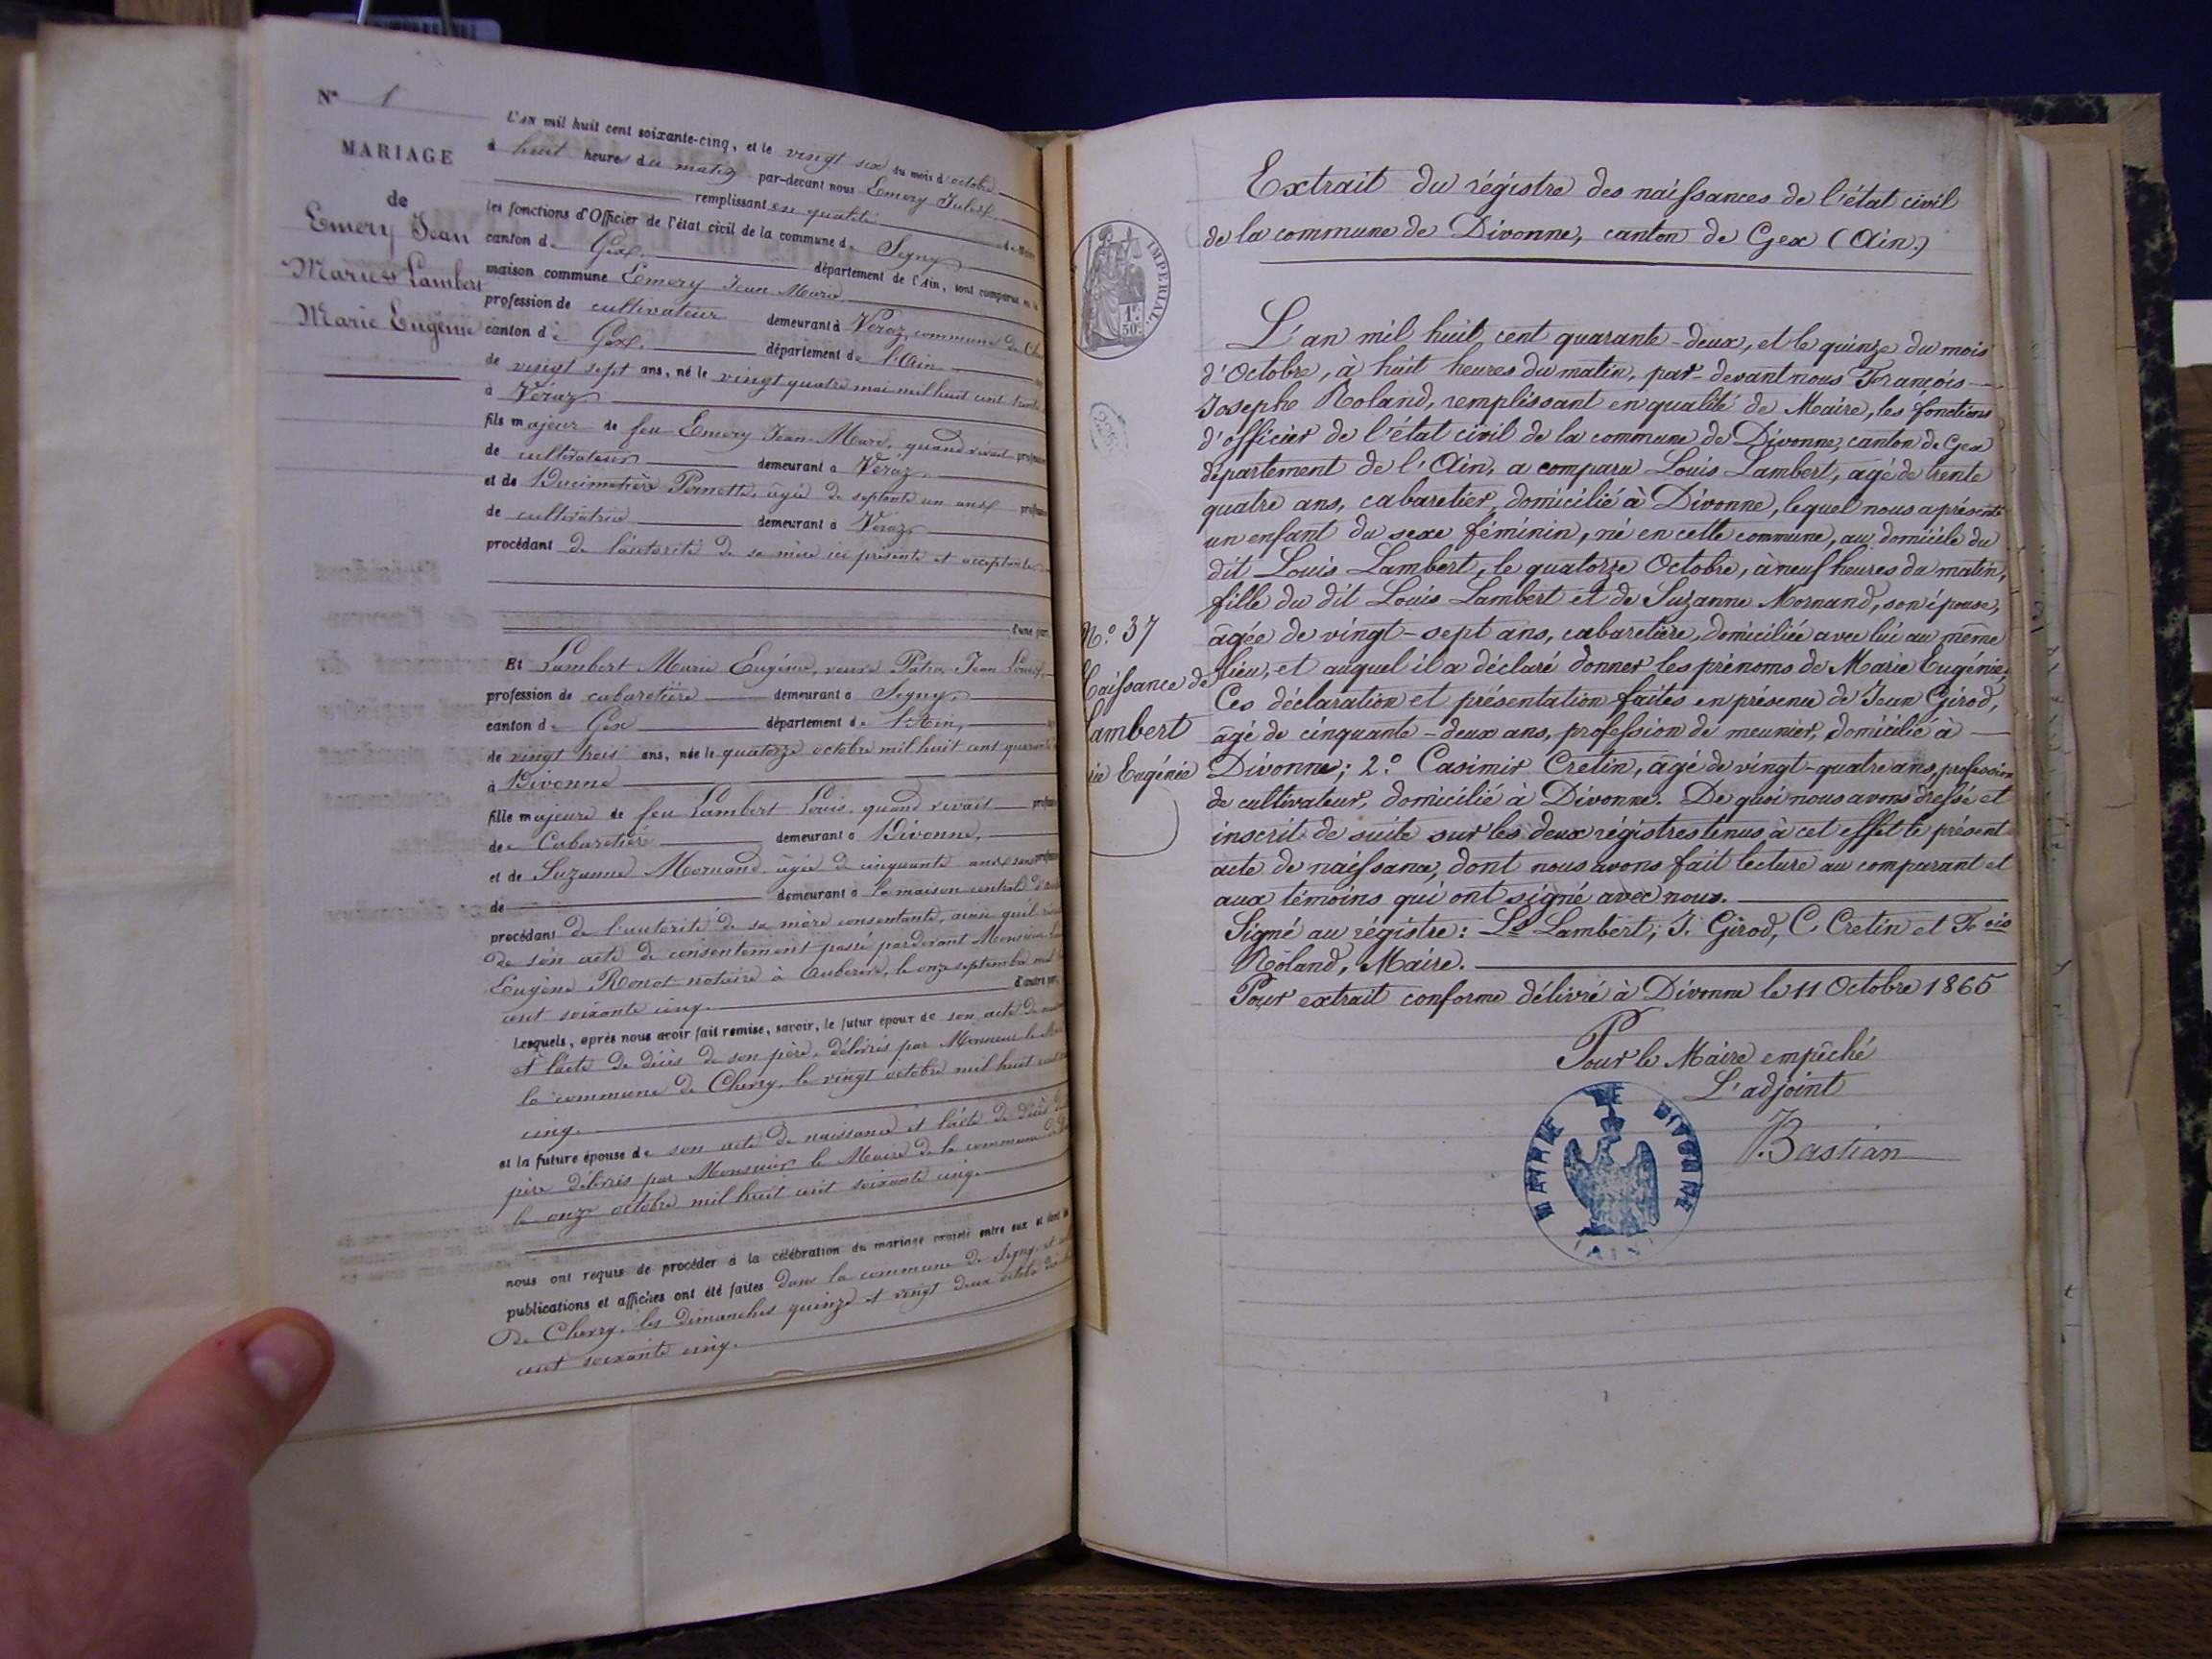 N° 1
MARIAGE
de
Emery Jean
Marie & Lambert
Marie Eugénie
L'AN mil huit cent soixante-cinq, et le vingt six du mois d'octobre
à huit heures du matin par-devant nous Emery Jules
remplissant en qualité de Maire
les fonctions d'Officier de l'état civil de la commune de Segny
canton de Gex. département de l'Ain, sont comparus en la
maison commune Emery Jean Marie
profession de cultivateur demeurant à Véraz, commune de
canton de Gex. département de l'Ain
de vingt sept ans, né le vingt quatre mai mil huit cent trente
à Véraz
fils majeur de feu Emery Jean-Marc, quand vivait profession
de cultivateur demeurant à Véraz
et de Pernette, âgée de septante un ans profession
de cultivatrice demeurant à Véraz
procédant de l'autorité de sa mère ici présente et acceptante
d'une part,
Et Lambert Marie Eugénie, veuve Jean Louis,
profession de cabaretière demeurant à Segny,
canton de Gex département de l'Ain,
de vingt trois ans, née le quatorze octobre mil huit cent quarante
à Divonne
fille majeure de feu Lambert Louis quand vivait profession
de Cabaretier demeurant à Divonne,
et de Suzanne Mornand âgée de cinquante ans sans profession
de demeurant à la maison centrale
procédant de l'autorité de sa mère consentante, ainsi qu'il
de son acte de consentement passé pardevant Monsieur
Eugène Ronot notaire à Auberive, le onze septembre mil
cent soixante cinq. d'autre part,
Lesquels, après nous avoir fait remise, savoir, le futur époux de son acte de
et l'acte de décès de son père, délivrés par Monsieur le
la commune de Chevry, le vingt octobre mil huit cent
cinq.
et la future épouse de son acte de naissance et l'acte de décès
père délivrés par Monsieur le Maire de la commune de
le onze octobre mil huit cent soixante cinq.
nous ont requis de procéder à la célébration du mariage projeté entre eux et dont les
publications et affiches ont été faites dans la commune de Segny et
de Chevry, les dimanches quinze et vingt deux octobre
cent soixante cinq.
Extrait du régistre des naissances de l'état civil
de la commune de Divonne, canton de Gex (Ain.)
IMPERIAL.
1f.
50c.
L'an mil huit cent quarante-deux, et le quinze du mois
d'Octobre, à huit heures du matin, par-devant nous François
Joseph Roland, remplissant en qualité de Maire, les fonctions
d'officier de l'état civil de la commune de Divonne, canton de Gex
département de l'Ain, a comparu Louis Lambert, agé de trente
quatre ans, cabaretier, domicilié à Divonne, lequel nous a présenté
un enfant du sexe féminin, né en cette commune, au domicile du
dit Louis Lambert, le quatorze Octobre, à neuf heures du matin,
fille du dit Louis Lambert et de Suzanne Mornand, son épouse,
âgée de vingt-sept ans, cabaretière, domiciliée avec lui au même
lieu, et auquel il a déclaré donner les prénoms de Marie Eugénie.
Ces déclaration et présentation faites en présence de Jean Girod,
âgé de cinquante-deux ans, profession de meunier, domicilié à
Divonne; 2.° Casimir Cretin, agé de vingt-quatre ans, profession
de cultivateur, domicilié à Divonne. De quoi nous avons dressé et
inscrit de suite sur les deux régistres tenus à cet effet le présent
acte de naissance, dont nous avons fait lecture au comparant et
aux témoins qui ont signé avec nous.
Signé au régistre: Ls Lambert, J. Girod, C. Cretin et Fcois
Roland, Maire.
Pour extrait conforme délivré à Divonne le 11 Octobre 1865
N.° 37
Naissance de
Lambert
Marie Eugénie
Pour le Maire empêché
L'adjoint
Bastian
MAIRIE DE DIVONNE
(AIN)